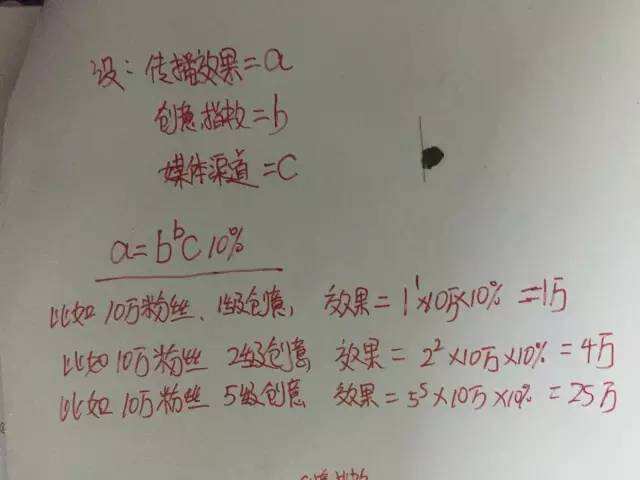 设：传播效果=a
创意指数=b
媒体渠道=C
a=b^b C 10%
比如 10万粉丝、1级创意, 效果=1^1×10万×10% =1万
比如 10万粉丝 2级创意 效果=2^2×10万×10% =4万
比如 10万粉丝 5级创意 效果=5^5×10万×10% =25万